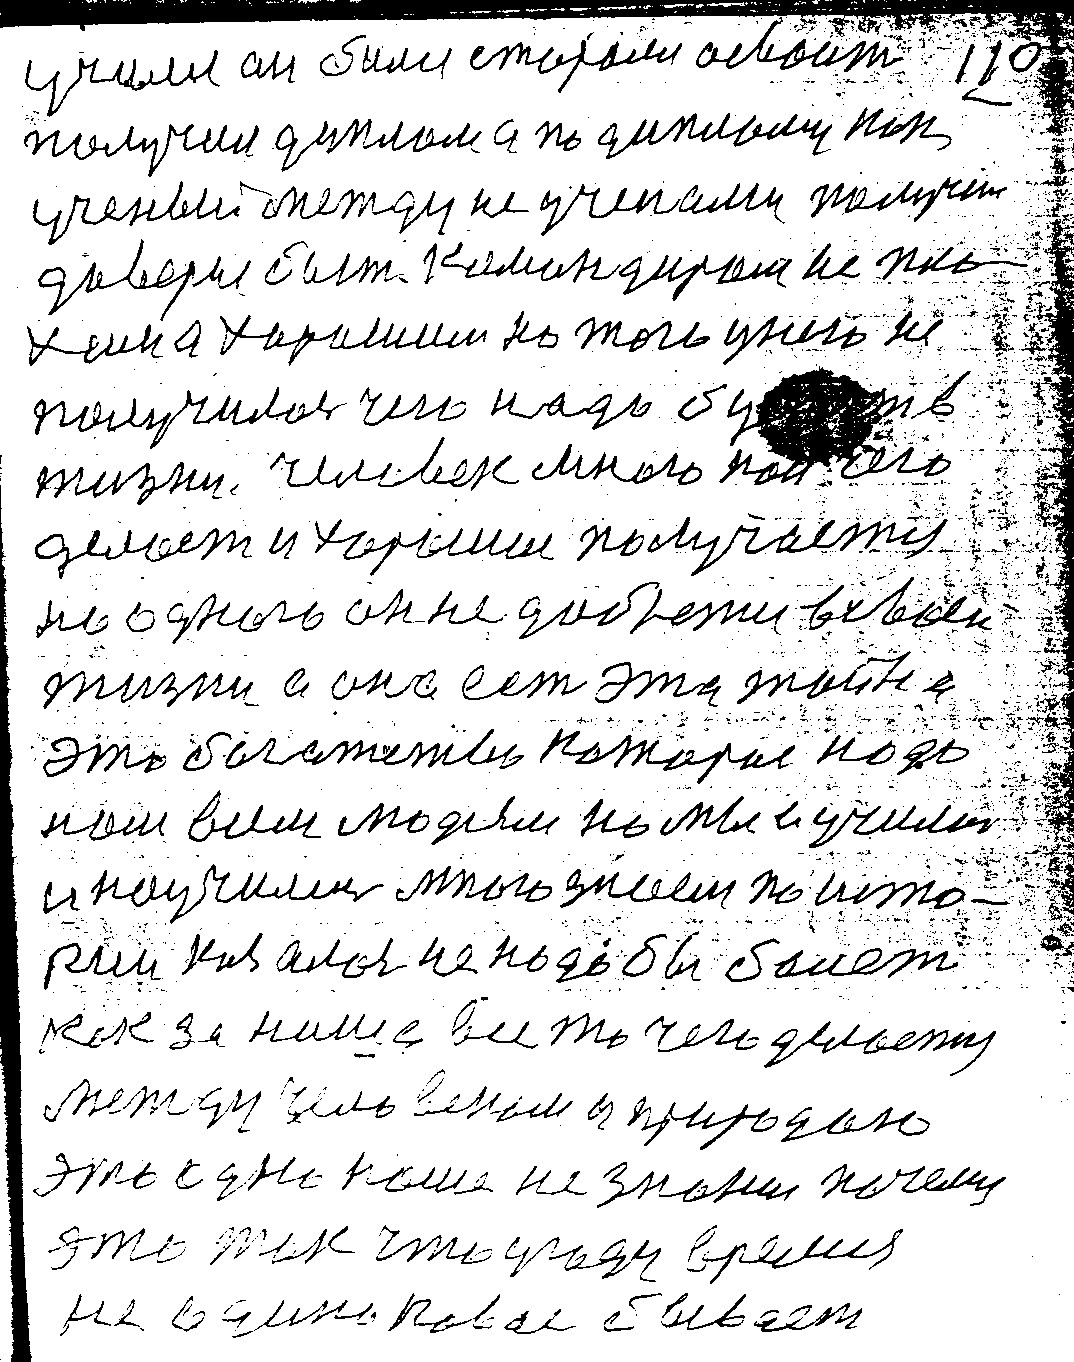 учили он были старали освоит 110
получил диплом а по диплому как
ученый между не учеными получил
доверье быт. Командиром не пло-
хим а хорошим но того у него не
получилось чего надо в
жизни. Человек много кой чего
делает и хорошие получается
но одного он не добьется в своей
жизни а она ест эта тайна
это богатство которые надо
нам всем людям но мы и учились
и научились много знаем по исто-
рии казалось не надо бы болет
как за наше все то чего делается
между человеком и природою
это одно наше не знания почему
это так что году время
не одинаковое бывает